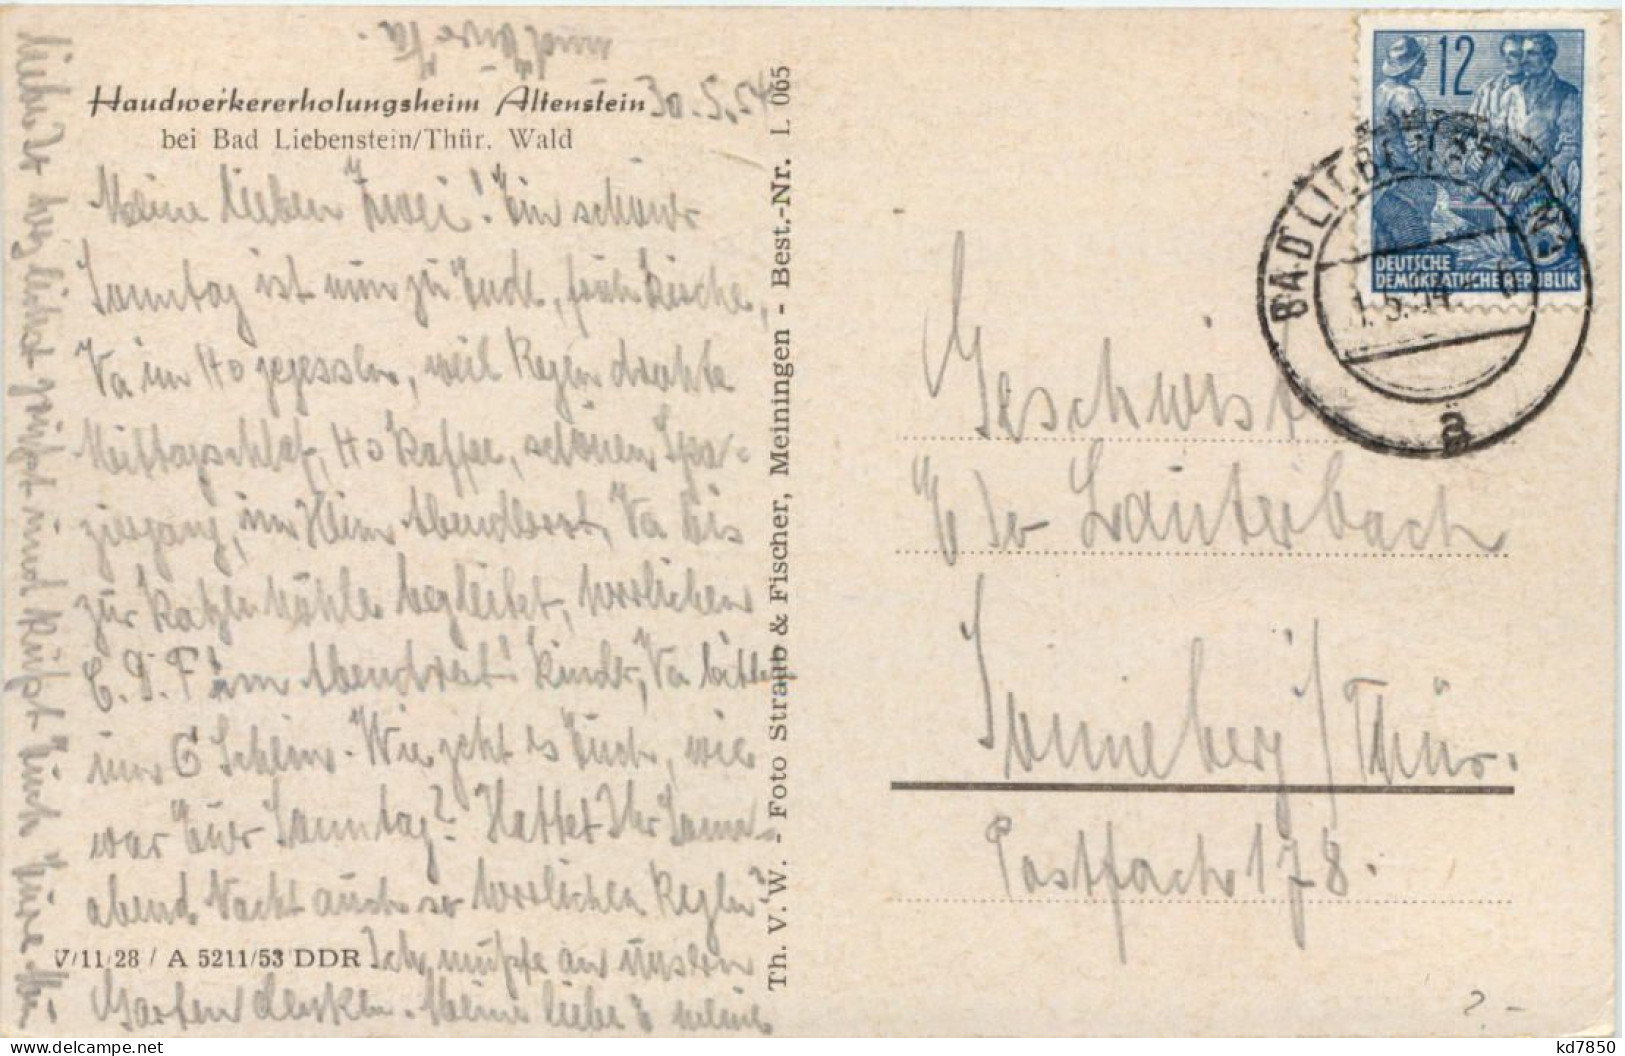 Handwerkererholungsheim Altenstein 30.5.54
bei Bad Liebenstein/Thür. Wald
Meine lieben Zwei! Ein schöner
Sonntag ist nun zu Ende, früh Kirche,
Va im Ho gegessen, weil Regen drohte
Mittagschlaf, Ho Kaffee, schönen Spa-
ziergang, im Heim Abendbrot, Va bis
zur Katzenhöhle begleitet, herrlichen
im Abendrot! Kinder, Va
um 6 Wie geht es Euch, wie
war Euer Sonntag? Hattet Ihr Sonn-
abend Nacht auch so herrlichen Regen?
Ich mußte an unsern
Garten denken. Meine liebe
herzlichst grüßt und küßt Euch Eure
und Eure Va.
V/11/28 / A 5211/53 DDR
Th. V. W. - Foto Straub & Fischer, Meiningen - Best.-Nr. L 065
12
DEUTSCHE
DEMOKRATISCHE REPUBLIK
BAD LIEBENSTEIN
a
Geschwist.
Lauterbach
Sonneberg/Thür.
Postfach 178.
? -
kd7850